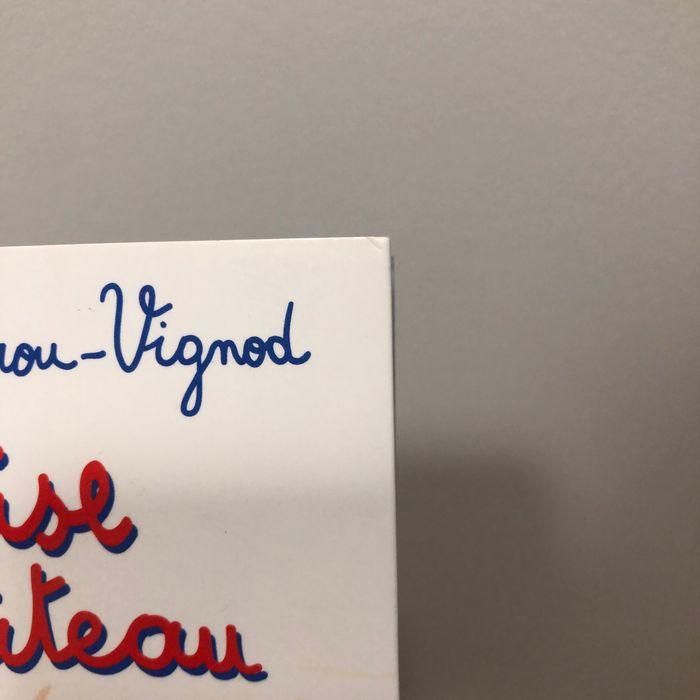 rou-Vignod
ise
âteau